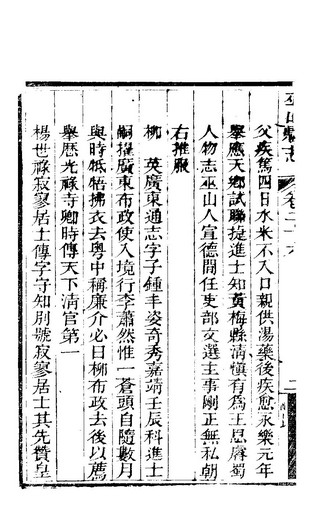 巫山縣志 卷二十六 二
父疾篤四日水米不入口親供湯藥後疾愈永樂元年
舉應天鄉試聯捷進士知黃梅縣清慎有為王恩廥蜀
人物志巫山人宣德間任吏部文選主事剛正無私朝
右推服
柳 英廣東通志字子鍾丰姿奇秀嘉靖壬辰科進士
嗣擢廣東布政使入境行李蕭然惟一蒼頭自隨數月
與時牴牾拂衣去粵中稱廉介必曰柳布政去後以薦
舉歷光祿寺卿時傳天下清官第一
楊世祿寂寥居士傳字守知別號寂寥居士其先贊皇